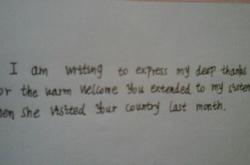 I am writing to express my deep thanks
or the warm welcome you extended to my sister
hen she visited your country last month.